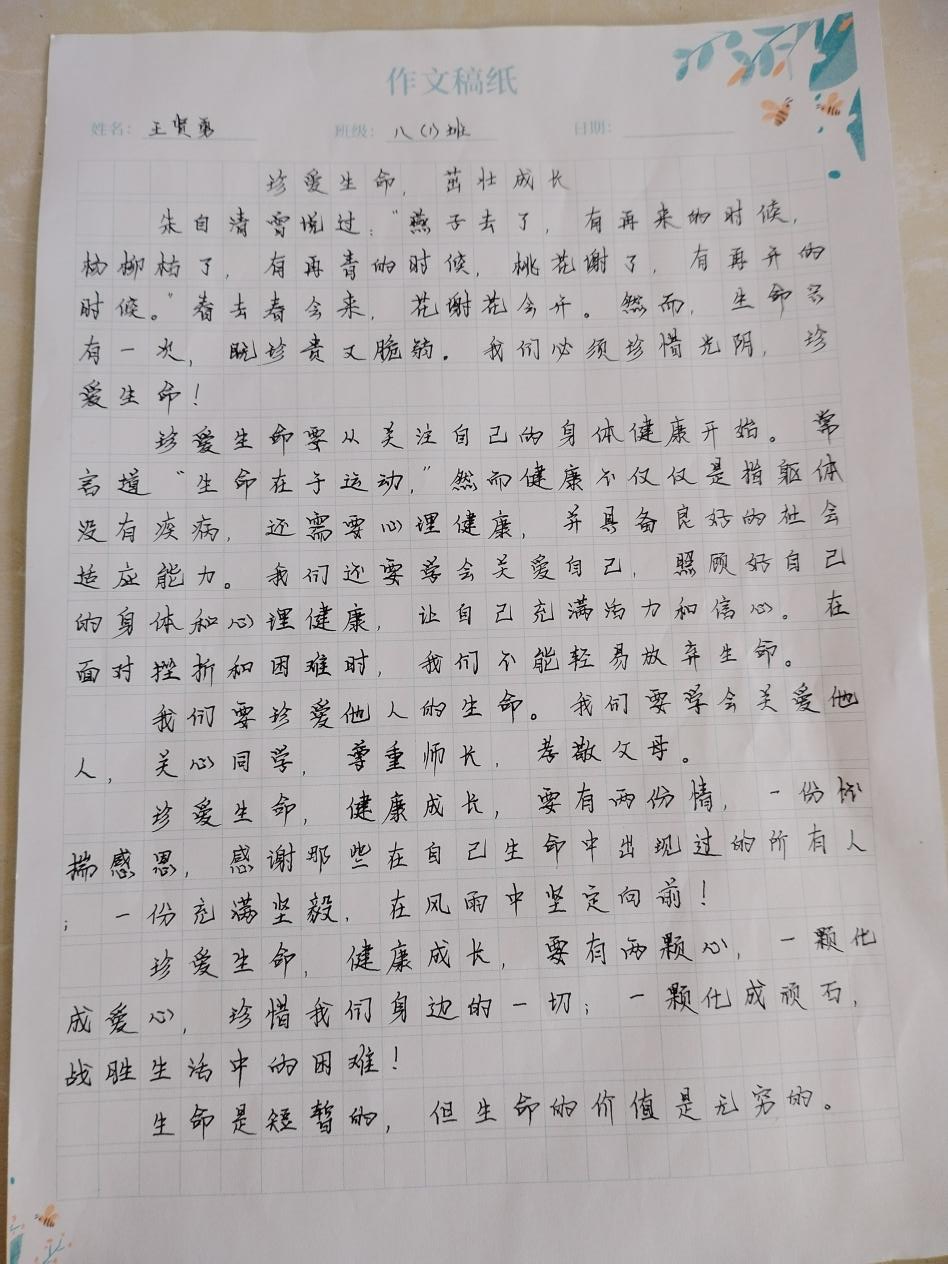 作文稿纸
姓名： 王贤勇 班级： 八（1）班 日期：
珍爱生命，茁壮成长
朱自清曾说过：“燕子去了，有再来的时候，
杨柳枯了，有再青的时候，桃花谢了，有再开的
时候。”春去春会来，花谢花会开。然而，生命只
有一次，既珍贵又脆弱。我们必须珍惜光阴，珍
爱生命！
珍爱生命要从关注自己的身体健康开始。常
言道“生命在于运动，”然而健康不仅仅是指躯体
没有疾病，还需要心理健康，并具备良好的社会
适应能力。我们还要学会关爱自己，照顾好自己
的身体和心理健康，让自己充满活力和信心。在
面对挫折和困难时，我们不能轻易放弃生命。
我们要珍爱他人的生命。我们要学会关爱他
人，关心同学，尊重师长，孝敬父母。
珍爱生命，健康成长，要有两份情，一份怀
揣感恩，感谢那些在自己生命中出现过的所有人
；一份充满坚毅，在风雨中坚定向前！
珍爱生命，健康成长，要有两颗心，一颗化
成爱心，珍惜我们身边的一切；一颗化成顽石，
战胜生活中的困难！
生命是短暂的，但生命的价值是无穷的。